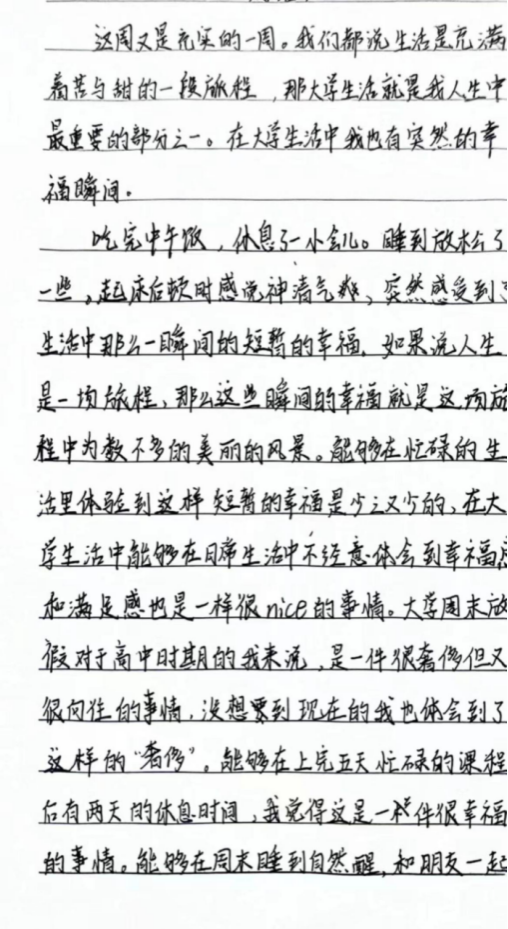 这周又是充实的一周。我们都说生活是充满
着苦与甜的一段旅程，那大学生活就是我人生中
最重要的部分之一。在大学生活中我也有突然的幸
福瞬间。
吃完中午饭，休息了一小会儿。睡到放松了
一些，起床后顿时感觉神清气爽、突然感受到了
生活中那么一瞬间的短暂的幸福，如果说人生
是一场旅程、那么这些瞬间的幸福就是这场旅
程中为数不多的美丽的风景。能够在忙碌的生
活里体验到这样短暂的幸福是少之又少的、在大
学生活中能够在日常生活中不经意体会到幸福感
和满足感也是一样很nice的事情。大学周末放
假对于高中时期的我来说，是一件很奢侈但又
很向往的事情，没想要到现在的我也体会到了
这样的“奢侈”。能够在上完五天忙碌的课程
后有两天的休息时间，我觉得这是一件很幸福
的事情。能够在周末睡到自然醒，和朋友一起